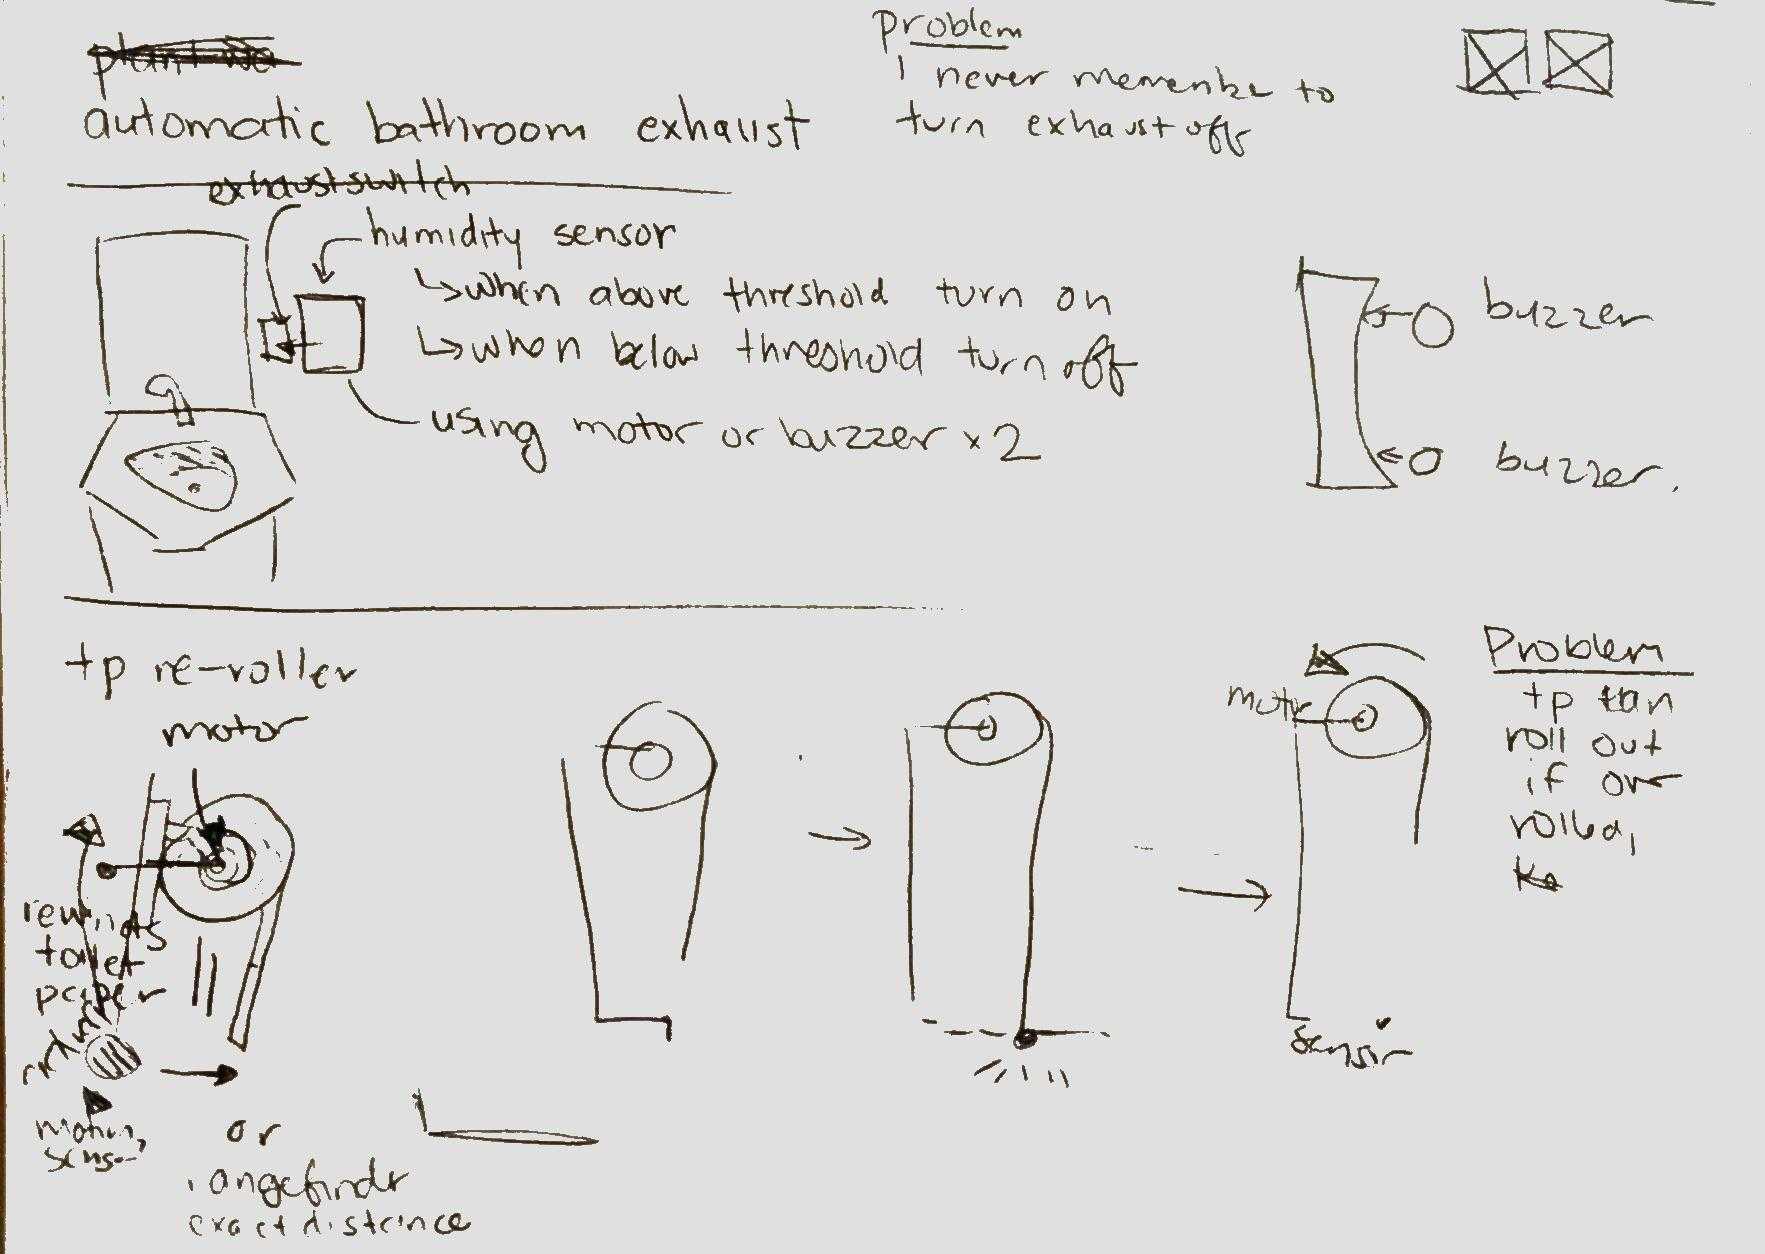 automatic bathroom exhaust
Problem
I never rememenber to
turn exhaust off
exhaust switch
humidity sensor
↳when above threshold turn on
↳when below threshold turn off
using motor or buzzer x2
buzzer
buzzer.
tp re-roller
motor
rewinds
toilet
paper
motion
sensor
or
rangefindr
exact distance
motor
sensor
Problem
tp can
roll out
if over
rolled,